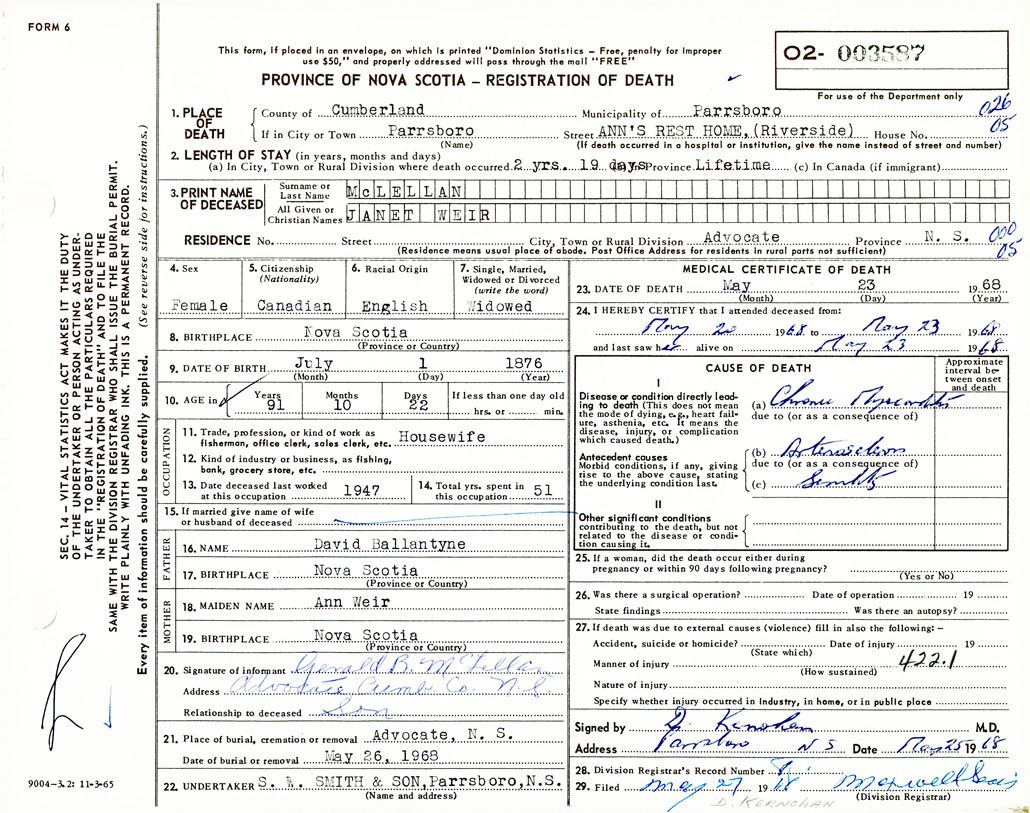 FORM 6
This form, if placed in an envelope, on which is printed "Dominion Statistics – Free, penalty for improper
use $50," and properly addressed will pass through the mail "FREE"
PROVINCE OF NOVA SCOTIA – REGISTRATION OF DEATH
O2- 003587
For use of the Department only
026
05
1. PLACE OF DEATH
County of Cumberland Municipality of Parrsboro
If in City or Town Parrsboro Street ANN'S REST HOME, (Riverside) House No.
(Name) (If death occurred in a hospital or institution, give the name instead of street and number)
2. LENGTH OF STAY (in years, months and days)
(a) In City, Town or Rural Division where death occurred 2 yrs. 19 days Province Lifetime (c) In Canada (if immigrant)
3. PRINT NAME OF DECEASED
Surname or Last Name McLELLAN
All Given or Christian Names JANET WEIR
RESIDENCE No. Street City, Town or Rural Division Advocate Province N. S.
(Residence means usual place of abode. Post Office Address for residents in rural parts not sufficient)
000
05
4. Sex
Female
5. Citizenship
(Nationality)
Canadian
6. Racial Origin
English
7. Single, Married,
Widowed or Divorced
(write the word)
Widowed
8. BIRTHPLACE Nova Scotia
(Province or Country)
9. DATE OF BIRTH July 1 1876
(Month) (Day) (Year)
10. AGE in Years Months Days If less than one day old
91 10 22 hrs. or min.
OCCUPATION
11. Trade, profession, or kind of work as
fisherman, office clerk, sales clerk, etc. Housewife
12. Kind of industry or business, as fishing,
bank, grocery store, etc.
13. Date deceased last worked
at this occupation 1947
14. Total yrs. spent in
this occupation 51
15. If married give name of wife
or husband of deceased
FATHER
16. NAME David Ballantyne
17. BIRTHPLACE Nova Scotia
(Province or Country)
MOTHER
18. MAIDEN NAME Ann Weir
19. BIRTHPLACE Nova Scotia
(Province or Country)
20. Signature of informant Gerald B. McLellan
Address Advocate Cumb. Co. N.S
Relationship to deceased Son
21. Place of burial, cremation or removal Advocate, N. S.
Date of burial or removal May 26, 1968
22. UNDERTAKER S. W. SMITH & SON, Parrsboro, N.S.
(Name and address)
MEDICAL CERTIFICATE OF DEATH
23. DATE OF DEATH May 23 1968
(Month) (Day) (Year)
24. I HEREBY CERTIFY that I attended deceased from:
May 20 1968 to May 23 1968
and last saw her alive on May 23 1968
CAUSE OF DEATH
Approximate
interval be-
tween onset
and death
I
Disease or condition directly lead-
ing to death (This does not mean
the mode of dying, e.g., heart fail-
ure, asthenia, etc. It means the
disease, injury, or complication
which caused death.)
(a) Chronic Myocarditis
due to (or as a consequence of)
Antecedent causes
Morbid conditions, if any, giving
rise to the above cause, stating
the underlying condition last.
(b)
due to (or as a consequence of)
(c) Senility
II
Other significant conditions
contributing to the death, but not
related to the disease or condi-
tion causing it.
25. If a woman, did the death occur either during
pregnancy or within 90 days following pregnancy?
(Yes or No)
26. Was there a surgical operation? Date of operation 19
State findings Was there an autopsy?
27. If death was due to external causes (violence) fill in also the following: –
Accident, suicide or homicide? Date of injury 19
(State which)
Manner of injury 422.1
(How sustained)
Nature of injury
Specify whether injury occurred in industry, in home, or in public place
Signed by D. Kernohan M.D.
Address Parrsboro N S Date May 25 1968
28. Division Registrar's Record Number
29. Filed May 27 1968
(Division Registrar)
D. KERNOHAN
SEC. 14 – VITAL STATISTICS ACT MAKES IT THE DUTY
OF THE UNDERTAKER OR PERSON ACTING AS UNDER-
TAKER TO OBTAIN ALL THE PARTICULARS REQUIRED
IN THE "REGISTRATION OF DEATH" AND TO FILE THE
SAME WITH THE DIVISION REGISTRAR WHO SHALL ISSUE THE BURIAL PERMIT.
WRITE PLAINLY WITH UNFADING INK. THIS IS A PERMANENT RECORD.
Every item of information should be carefully supplied. (See reverse side for instructions.)
9004-3.2: 11-3-65